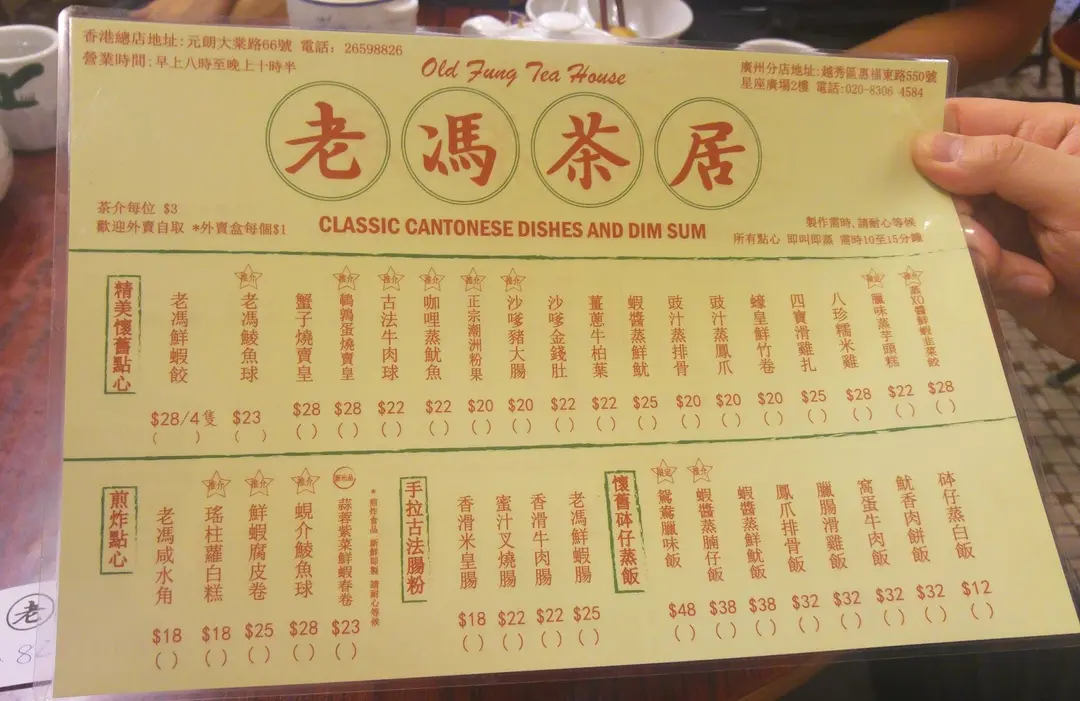 香港總店地址:元朗大業路66號 電話: 26598826
營業時間:早上八時至晚上十時半
Old Fung Tea House
廣州分店地址:越秀區惠福東路550號
星座廣場2樓 電話:020-8306 4584
老馮茶居
茶介每位 $3
歡迎外賣自取 *外賣盒每個$1
CLASSIC CANTONESE DISHES AND DIM SUM
製作需時,請耐心等候
所有點心 即叫即蒸 需時10至15分鐘
精美懷舊點心
老馮鮮蝦餃 $28/4隻 ( )
推介 老馮鯪魚球 $23 ( )
蟹子燒賣皇 $28 ( )
推介 鵪鶉蛋燒賣皇 $28 ( )
推介 古法牛肉球 $22 ( )
推介 咖哩蒸魷魚 $22 ( )
推介 正宗潮洲粉果 $20 ( )
推介 沙嗲豬大腸 $20 ( )
沙嗲金錢肚 $22 ( )
薑蔥牛柏葉 $22 ( )
蝦醬蒸鮮魷 $25 ( )
豉汁蒸排骨 $20 ( )
豉汁蒸鳳爪 $20 ( )
蠔皇鮮竹卷 $20 ( )
四寶滑雞扎 $25 ( )
八珍糯米雞 $28 ( )
限定 臘味蒸芋頭糕 $22 ( )
推介 蒸XO醬鮮蝦韭菜餃 $28 ( )
煎炸點心
老馮咸水角 $18 ( )
推介 瑤柱蘿白糕 $18 ( )
推介 鮮蝦腐皮卷 $25 ( )
推介 蜆介鯪魚球 $28 ( )
新出品 蒜蓉紫菜鮮蝦春卷 $23 ( )
*煎炸食品 新鮮即製 請耐心等候
手拉古法腸粉
香滑米皇腸 $18 ( )
蜜汁叉燒腸 $22 ( )
香滑牛肉腸 $22 ( )
老馮鮮蝦腸 $25 ( )
懷舊砵仔蒸飯
限定 鴛鴦臘味飯 $48 ( )
推介 蝦醬蒸腩仔飯 $38 ( )
蝦醬蒸鮮魷飯 $38 ( )
鳳爪排骨飯 $32 ( )
臘腸滑雞飯 $32 ( )
窩蛋牛肉飯 $32 ( )
魷香肉餅飯 $32 ( )
砵仔蒸白飯 $12 ( )
老